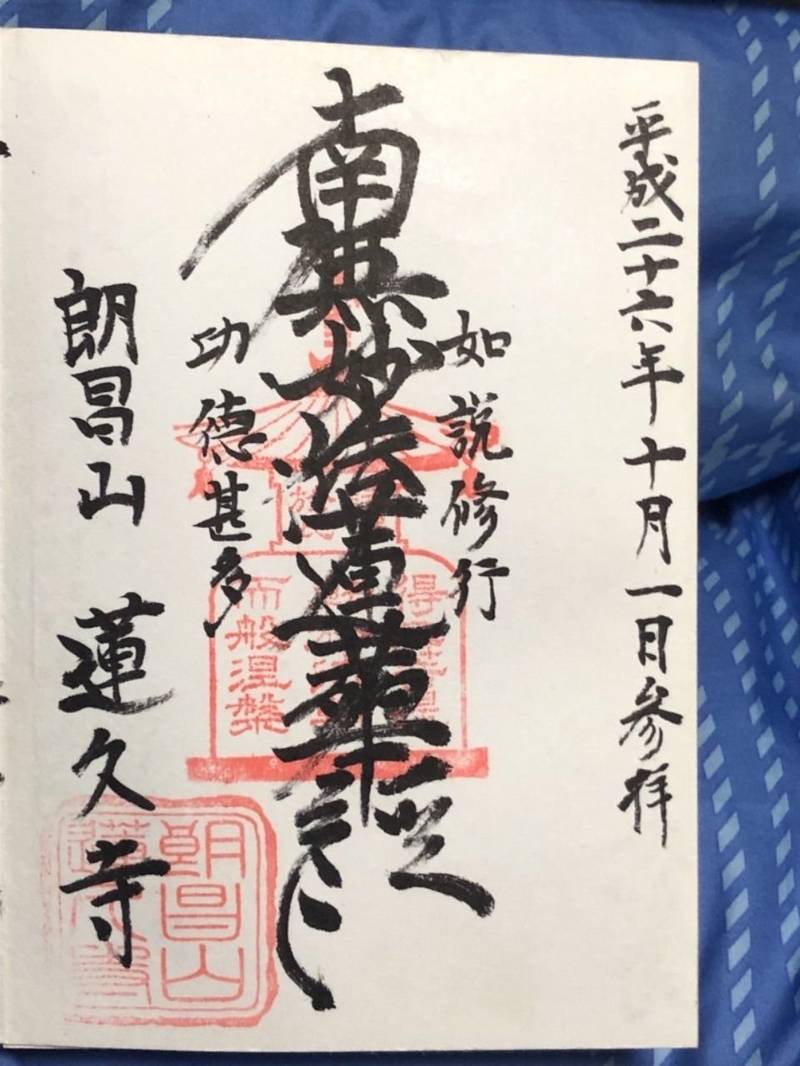 平成二十六年十月一日参拝
如説修行
南無妙法蓮華経
功徳甚多
朗昌山 蓮久寺
而般涅槃
朗昌山
蓮久寺